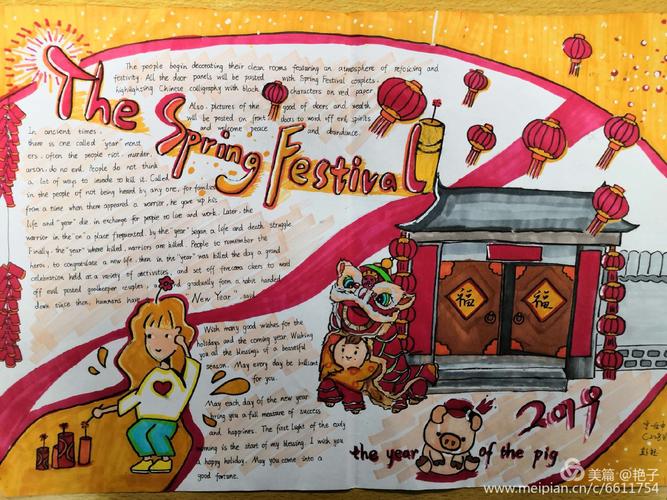 The Spring Festival
The people begin decorating their clean rooms featuring an atmosphere of rejoicing and
festivity. All the door panels will be pasted with Spring Festival couplets,
highlighting Chinese calligraphy with black characters on red paper.
Also, pictures of the good of doors and wealth
will be posted on font doors to word off evil spirits
and welcome peace and abundance.
In ancient times,
there is one called "year" monst
ers, often the people riot, murder,
arson, do no end. People do not think
a lot of ways to invade to kill it. Called
in the people of not being heard by any one, for families
from a time when them appeared a warrior, he gave up his
life and "year" die in exchange for people to live and work. Later, the
warrior in the "on" a place frequented, by the "year" began a life and death struggle.
Finally, the "year" whose killed, warriors are killed. People to remember the
hero, to congratulate a new life, then in the "year" was killed the day a grand
celebration held at a variety of activities, and set off firecrackers to word
off evil posted goodkeeper couples, and gradually form a habit handed
down since then, humans have New Year", said
Wish many good wishes for the
holidays and the coming year. Wishing
you all the blessings of a beautiful
season. May every day be brilliant
for you.
May each day of the new year
bring you a full measure of success
and happines. The first light of the early
morning is the start of my blessing. I wish you
a happy holiday. May you come into a
good fortune.
福
福
2019
the year of the pig
美篇 @艳子
www.meipian.cn/c/6611754